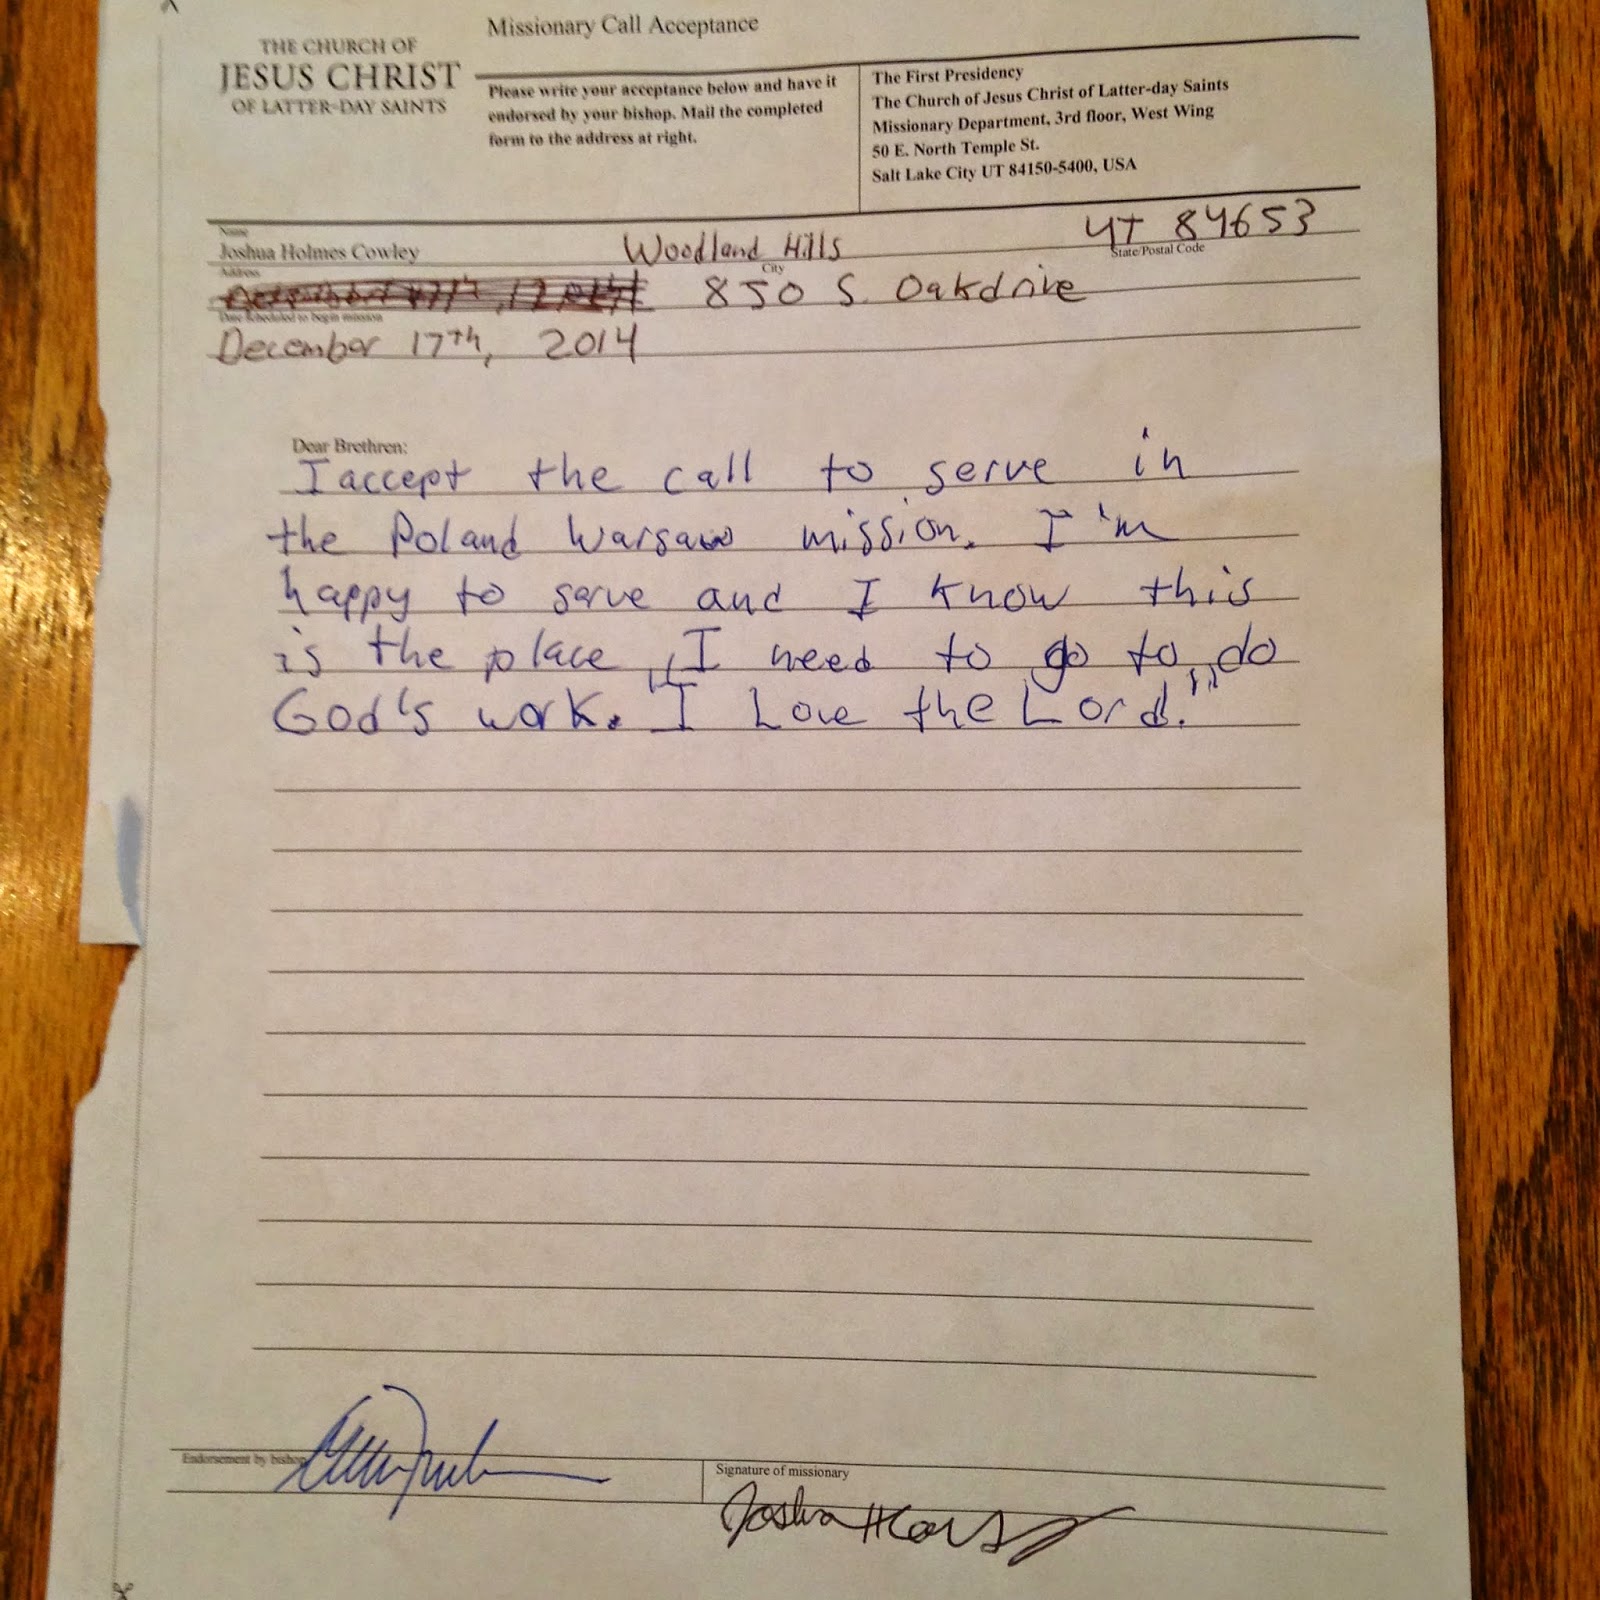 Missionary Call Acceptance
THE CHURCH OF
JESUS CHRIST
OF LATTER-DAY SAINTS
Please write your acceptance below and have it
endorsed by your bishop. Mail the completed
form to the address at right.
The First Presidency
The Church of Jesus Christ of Latter-day Saints
Missionary Department, 3rd floor, West Wing
50 E. North Temple St.
Salt Lake City UT 84150-5400, USA
Name
Joshua Holmes Cowley Woodland Hills UT 84653
Address City State/Postal Code
850 S. Oakdrive
Date scheduled to begin mission
December 17th, 2014
Dear Brethren:
I accept the call to serve in
the Poland Warsaw mission. I'm
happy to serve and I know this
is the place I need to go to do
God's work. "I Love the Lord."
Endorsement by bishop
Signature of missionary
Joshua H Cowley